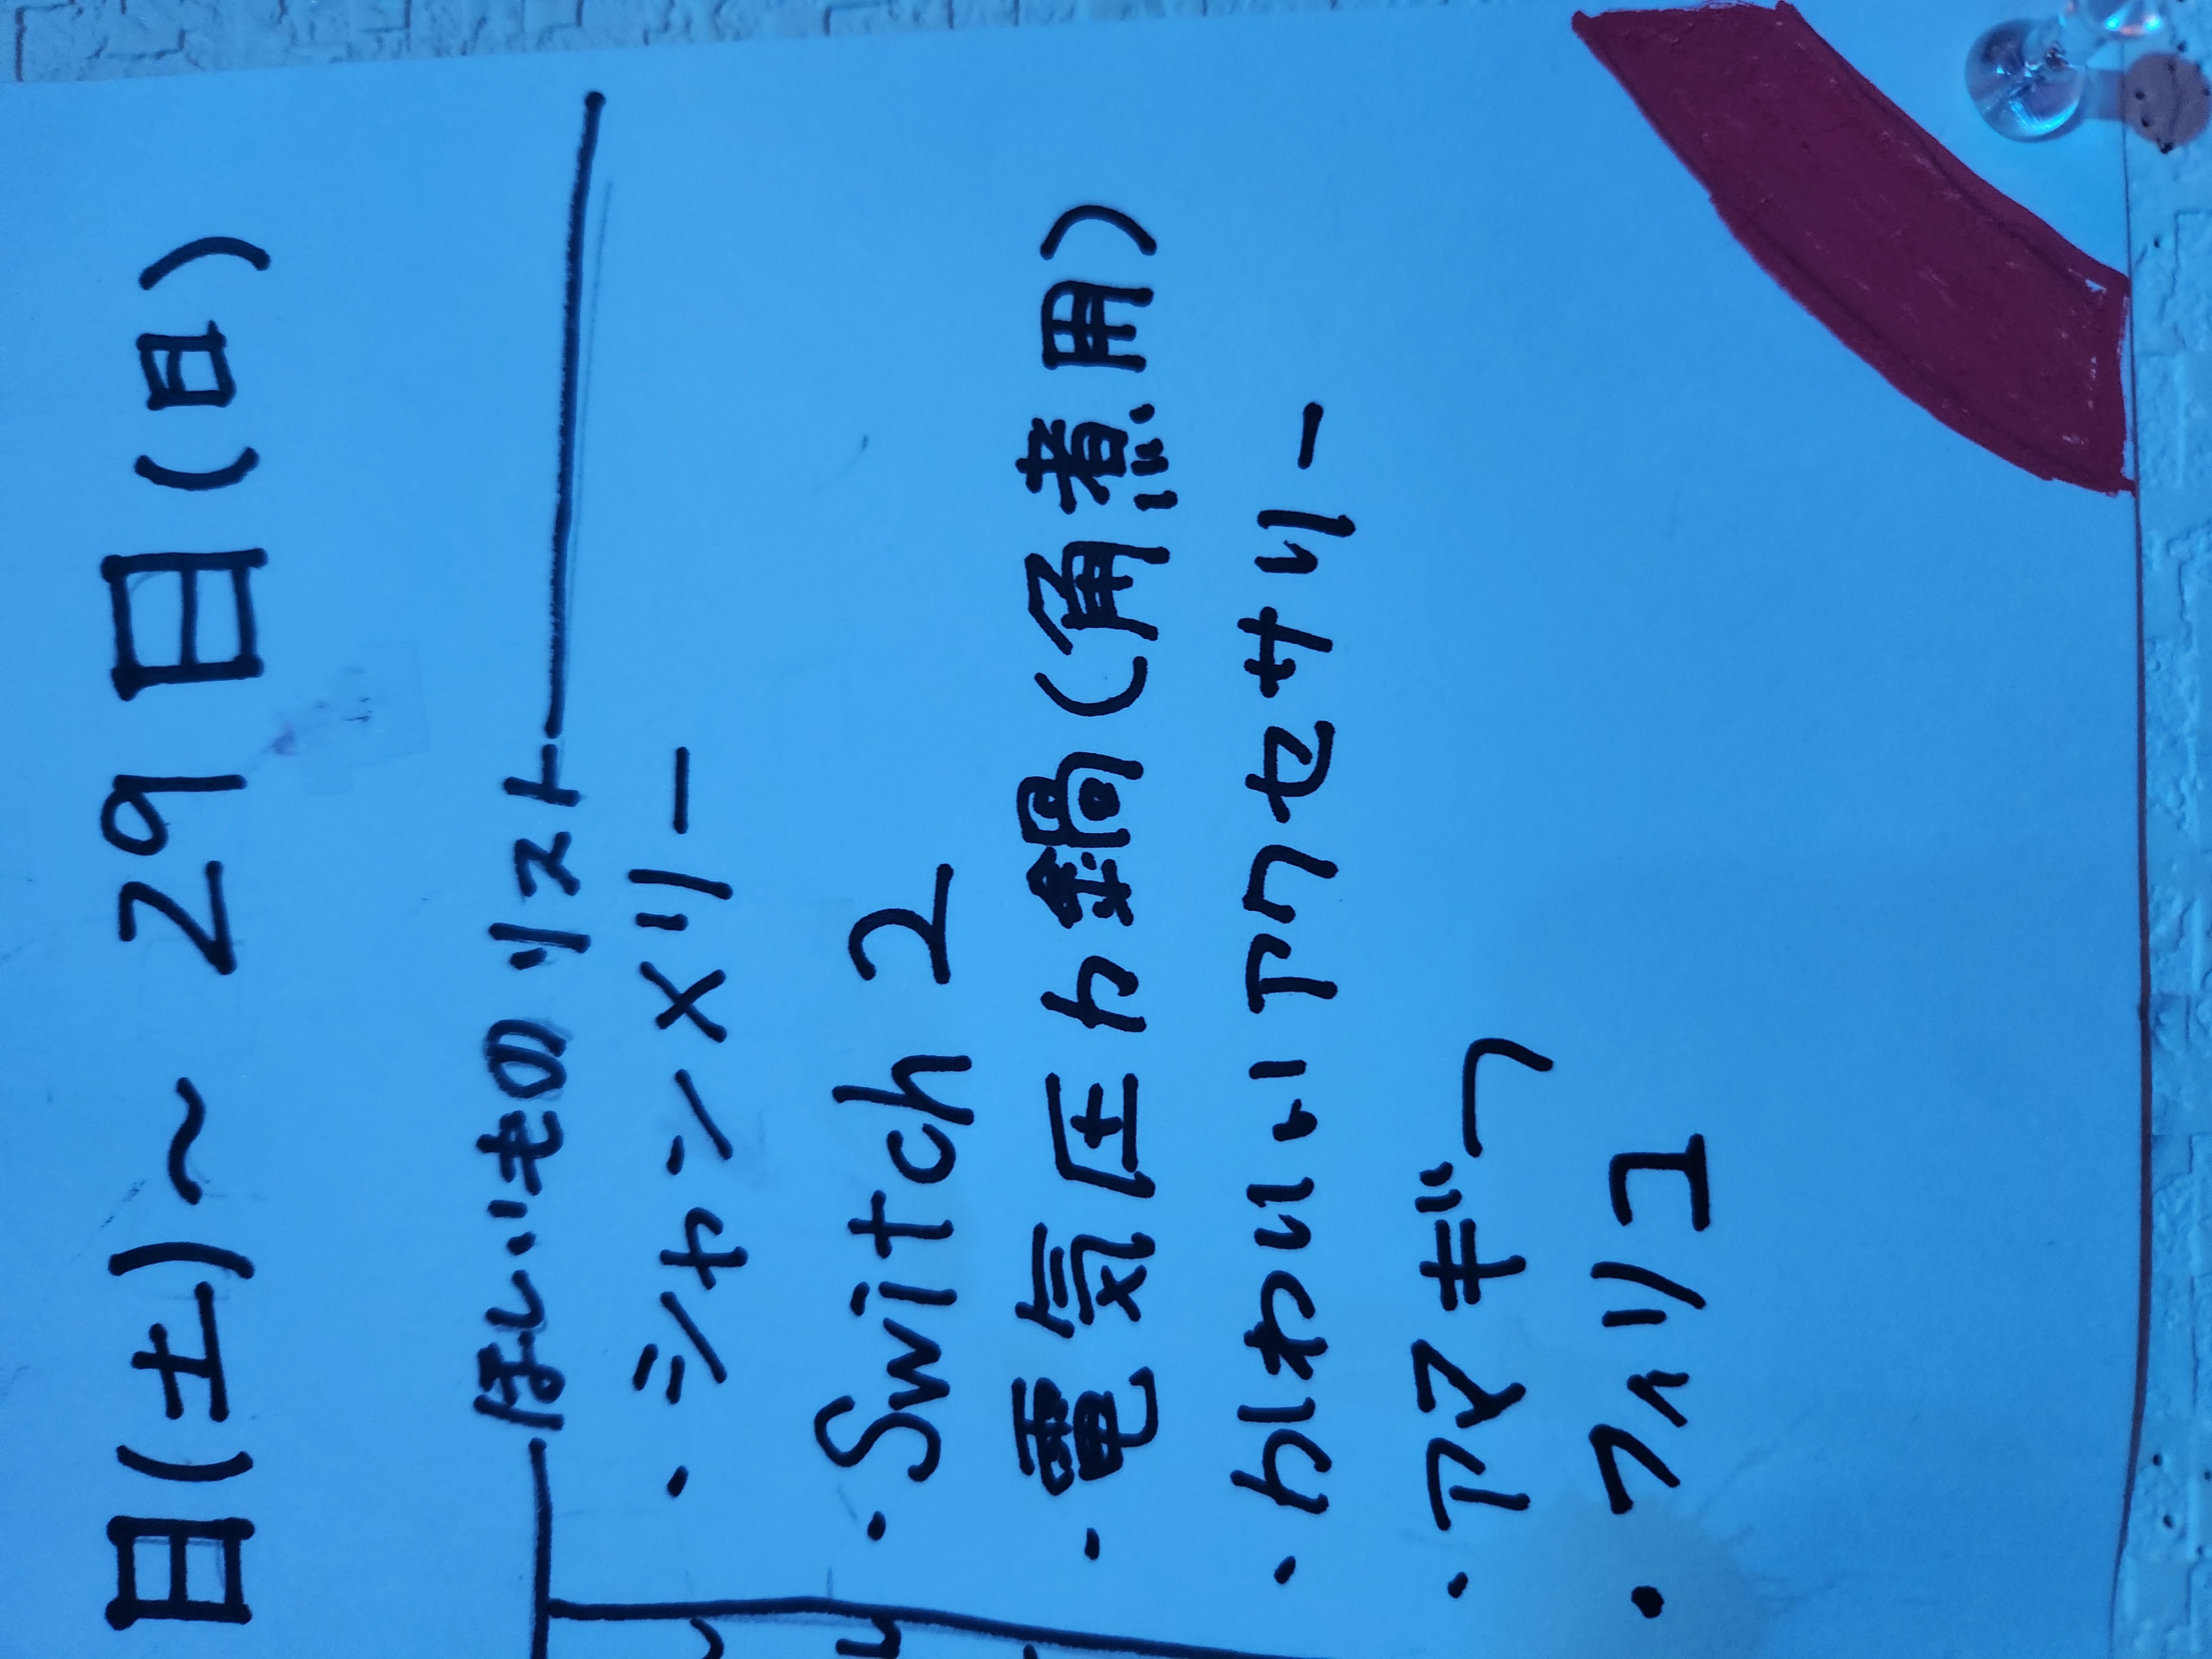 日(土)〜 29日(日)
ほしいものリスト
・シャンメリー
・Switch 2
・電気圧力鍋(角煮用)
・かわいいアクセサリー
・アマギフ